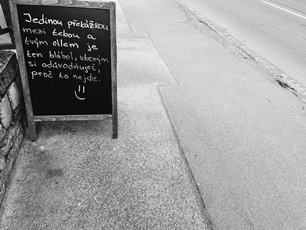 Jedinou překážkou
mezi tebou a
tvým cílem je
ten blábol, kterým
si odůvodňuješ,
proč to nejde.
!!